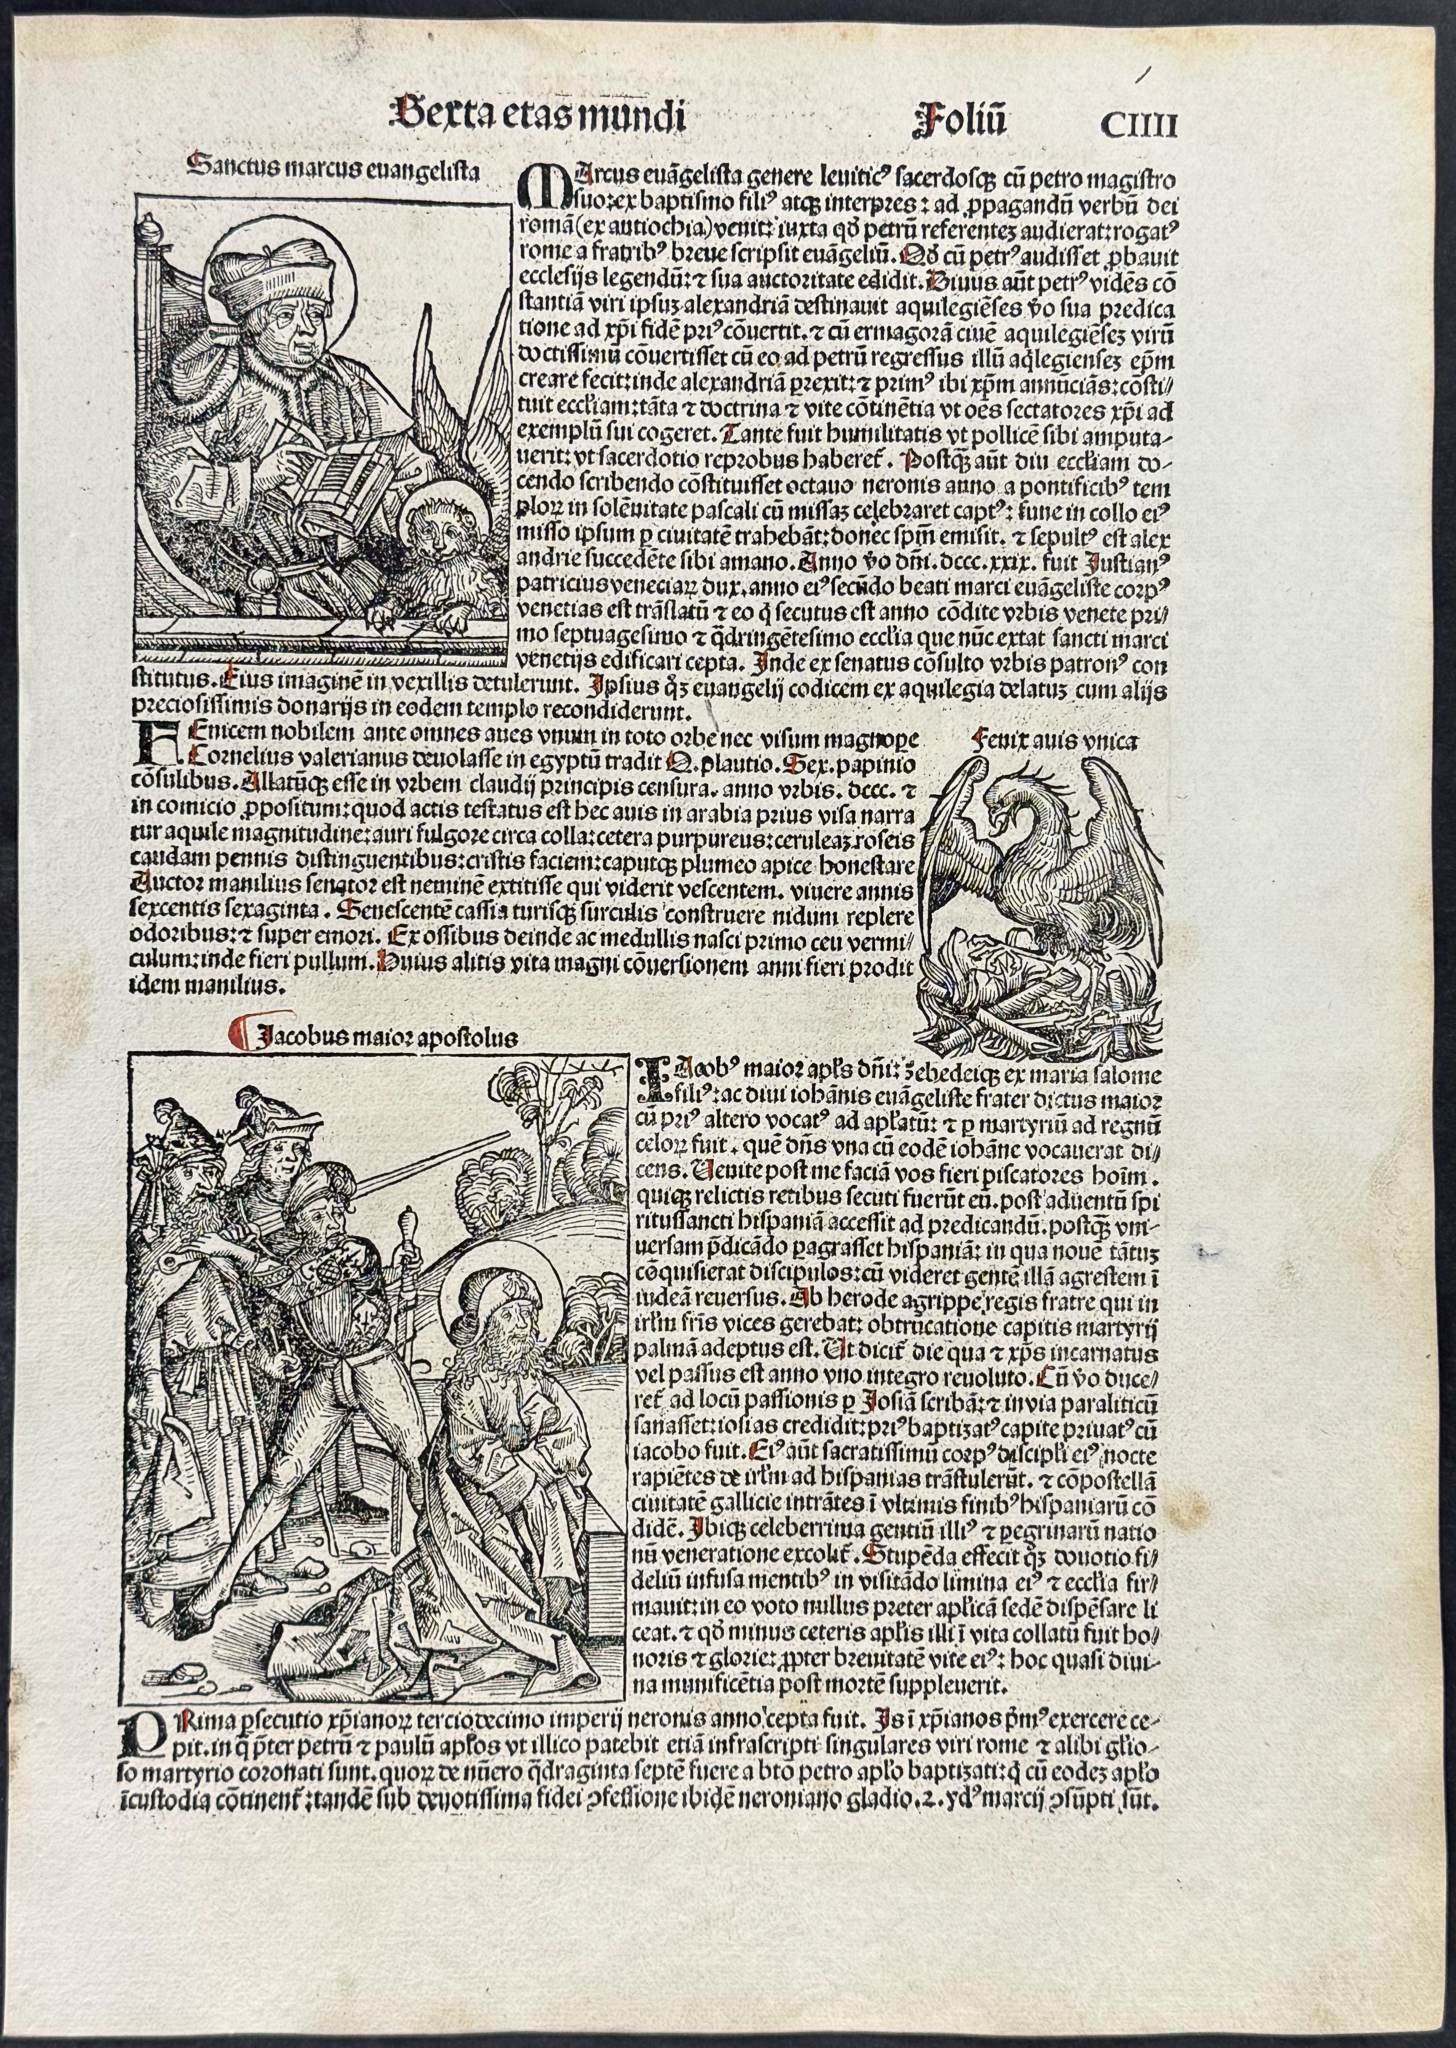 Sexta etas mundi Foliū CIIII
Sanctus marcus euangelista
MArcus euāgelista genere leuiticꝰ sacerdosqꝫ cū petro magistro
suo:ex baptismo filiꝰ atqꝫ interpres: ad ꝓpagandū verbū dei
romā(ex antiochia)venit: iuxta qđ petrū referentez audierat:rogatꝰ
rome a fratribꝰ breue scripsit euāgeliū. Qđ cū petrꝰ audisset ꝓbauit
ecclesijs legendū:⁊ sua auctoritate edidit. Huius aūt petrꝰ vidēs cō
stantiā viri ipsuz alexandriā destinauit aquilegiēses v̄o sua predica
tione ad xp̄i fidē priꝰ cōuertit. ⁊ cū ermagorā ciuē aquilegiēsez virū
doctissimū cōuertisset cū eo ad petrū regressus illū aq̄legiensez ep̄m
creare fecit:inde alexandriā ꝑrexit:⁊ primꝰ ibi xp̄m annūciās:costi/
tuit eccl̄iam:tāta ⁊ doctrina ⁊ vite cōtinētia vt oēs sectatores xp̄i ad
exemplū sui cogeret. Tante fuit humilitatis vt pollicē sibi amputa-
uerit: vt sacerdotio reprobus haberet̄. Postqꝫ aūt diu eccl̄iam do-
cendo scribendo cōstituisset octauo neronis anno a pontificibꝰ tem
ploꝝ in solēnitate pascali cū missaz celebraret captꝰ: fune in collo eiꝰ
misso ipsum ꝑ ciuitatē trahebāt:donec sp̄m emisit. ⁊ sepultꝰ est alex
andrie succedēte sibi amano. Anno v̄o dn̄i. dccc.xxix. fuit Justianꝰ
patricius veneciaꝝ dux. anno eiꝰ secūdo beati marci euāgeliste corpꝰ
venetias est trāslatū ⁊ eo q̄ secutus est anno cōdite vrbis venete pri/
mo septuagesimo ⁊ q̄dringētesimo eccl̄ia que nūc extat sancti marci
venetijs edificari cepta. Inde ex senatus cōsulto vrbis patronꝰ con
stitutus. Eius imaginē in vexillis detulerunt. Ipsius qꝫ euangelij codicem ex aquilegia delatuz cum alijs
preciosissimis donarijs in eodem templo recondiderunt.
FEnicem nobilem ante omnes aues vnum in toto orbe nec visum magnopere
Cornelius valerianus deuolasse in egyptū tradit Q. plautio. Sex. papinio
cōsulibus. Allatūqꝫ esse in vrbem claudij principis censura. anno vrbis. dccc. ⁊
in comicio ꝓpositum:quod actis testatus est hec auis in arabia prius visa narra
tur aquile magnitudine:auri fulgore circa colla:cetera purpureus:ceruleaz roseis
caudam pennis distinguentibus:cristis faciem:caputqꝫ plumeo apice honestare
Auctor manilius senator est neminē extitisse qui viderit vescentem. viuere annis
sexcentis sexaginta. Senescentē cassia turisqꝫ surculis construere nidum replere
odoribus:⁊ super emori. Ex ossibus deinde ac medullis nasci primo ceu vermi/
culum:inde fieri pullum. Huius alitis vita magni cōuersionem anni fieri prodit
idem manilius.
Fenix auis vnica
Jacobus maior apostolus
IAcobꝰ maior apl̄s dn̄i: zebedeiqꝫ ex maria salome
filiꝰ:ac diui iohānis euāgeliste frater dictus maior
cū priꝰ altero vocatꝰ ad apl̄atū: ⁊ ꝑ martyriū ad regnū
celoꝝ fuit. quē dn̄s vna cū eodē iohāne vocauerat di/
cens. Uenite post me faciā vos fieri piscatores hoīm.
quiqꝫ relictis retibus secuti fuerūt eū. post aduentū spi
ritussancti hispaniā accessit ad predicandū. postqꝫ vni-
uersam p̄dicādo ꝑagrasset hispaniā: in qua nouē tātuz
cōquisierat discipulos:cū videret gentē illā agrestem ī
iudeā reuersus. Ab herode agrippe regis fratre qui in
irl̄m fr̄is vices gerebat: obtrūcatione capitis martyrij
palmā adeptus est. Ut dicit̄ die qua ⁊ xp̄s incarnatus
vel passus est anno vno integro reuoluto. Cū v̄o duce/
ret̄ ad locū passionis ꝑ Josiā scribā:⁊ in via paraliticū
sanasset:iosias credidit:priꝰ baptizatꝰ capite priuatꝰ cū
iacobo fuit. Eiꝰ aūt sacratissimū corpꝰ discipl̄i eiꝰ nocte
rapiētes de irl̄m ad hispanias trāstulerūt. ⁊ cōpostellā
ciuitatē gallicie intrātes ī vltimis finibꝰ hispaniarū cō
didē. Ibiqꝫ celeberrima gentiū illiꝰ ⁊ ꝑegrinarū natio
nū veneratione excolit̄. Stupēda effecit qꝫ deuotio fi/
deliū infusa mentibꝰ in visitādo limina eiꝰ ⁊ eccl̄ia fir/
mauit:in eo voto nullus preter apl̄icā sedē dispēsare li
ceat. ⁊ qđ minus ceteris apl̄is illi ī vita collatū fuit ho/
noris ⁊ glorie: ꝓpter breuitatē vite eiꝰ: hoc quasi diui-
na munificētia post mortē suppleuerit.
PRima ꝑsecutio xp̄ianoꝝ terciodecimo imperij neronis anno cepta fuit. Is ī xp̄ianos p̄mꝰ exercere ce-
pit. in q̄ p̄ter petrū ⁊ paulū apl̄os vt illico patebit etiā infrascripti singulares viri rome ⁊ alibi gl̄io-
so martyrio coronati sunt. quoꝝ de nūero q̄draginta septē fuere a bt̄o petro apl̄o baptizati:q̄ cū eodez apl̄o
īcustodia cōtinent̄:tandē sub deuotissima fidei ꝯfessione ibidē neroniano gladio. 2. ydꝰ marcij ꝯsūpti sūt.